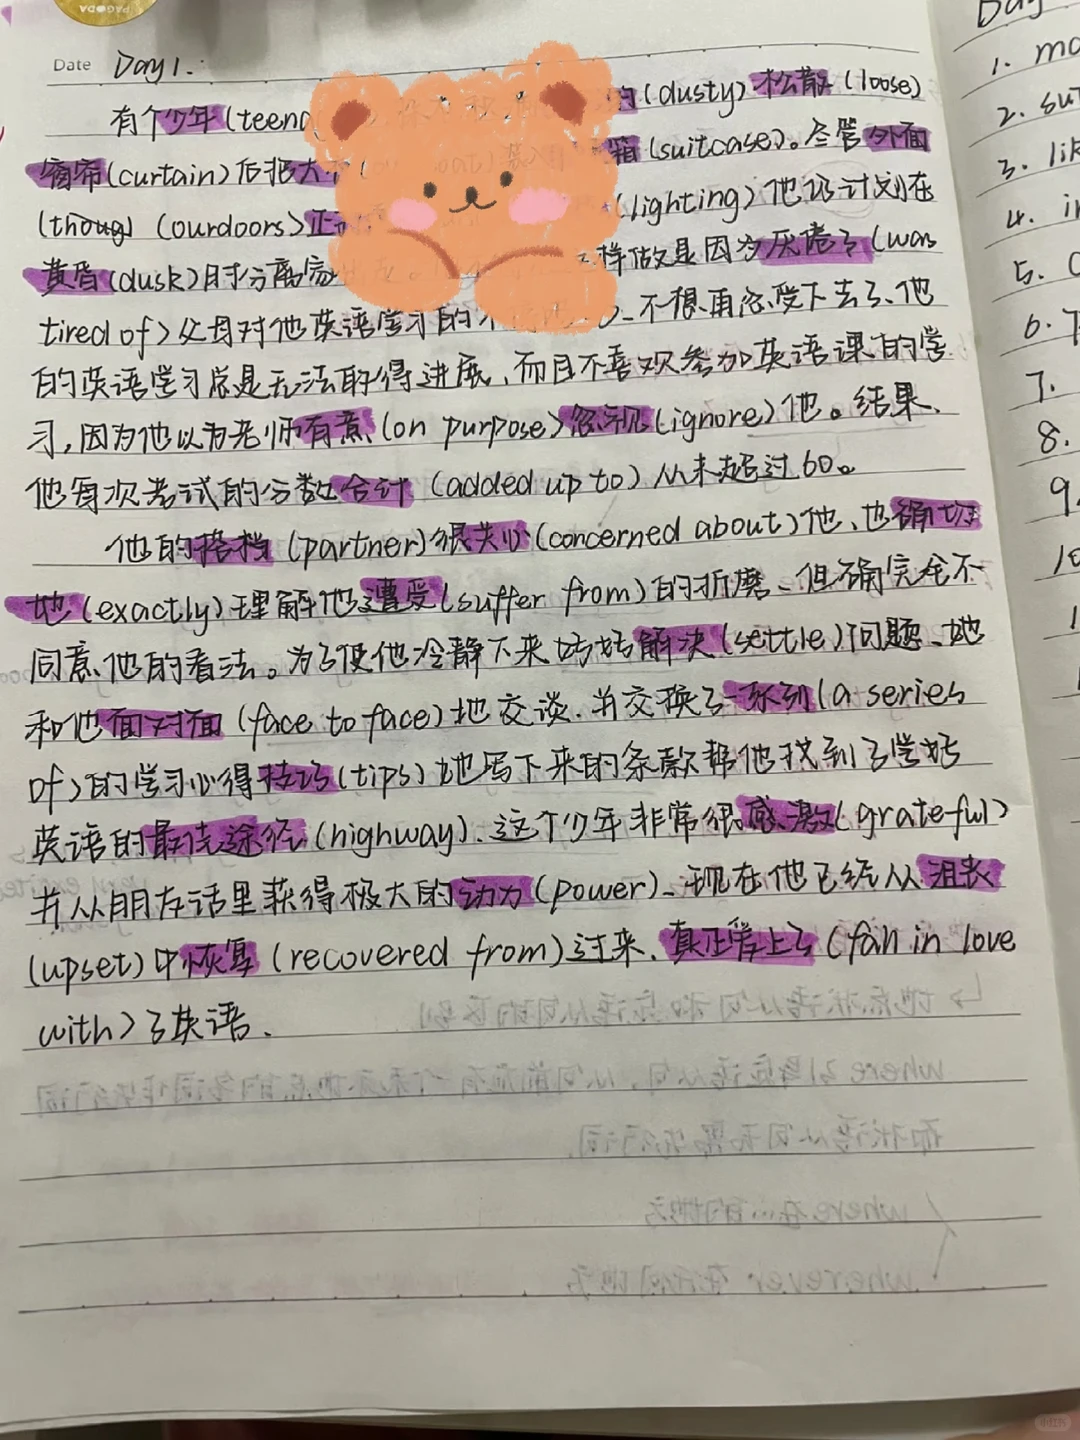 PAGODA
Date Day 1.
有个少年(teena 的(dusty)松散(loose)
窗帘(curtain)后把大 箱(suitcase)。尽管外面
(thoug) (ourdoors)正 (lighting)他仍计划在
黄昏(dusk)时分离家 样做是因为厌倦了(was
tired of)父母对他英语学习的 不想再忍受下去了、他
的英语学习总是无法取得进展、而且不喜欢参加英语课的学
习,因为他以为老师有意(on purpose)忽视(ignore)他。结果、
他每次考试的分数合计(added up to)从未超过60。
他的搭档(partner)很关心(concerned about)他、也确切
地(exactly)理解他遭受(suffer from)的折磨、但确完全不
同意他的看法。为了使他冷静下来好好解决(settle)问题、她
和他面对面(face to face)地交谈.并交换了一系列(a series
of)的学习心得技巧(tips)她写下来的条款帮他找到了学好
英语的最佳途径(highway)、这个少年非常很感激(grateful)
并从朋友话里获得极大的动力(power)、现在他已经从沮丧
(upset)中恢复(recovered from)过来、真正爱上了(fall in love
with)了英语、
Day
1. ma
2. su
3. lik
4. i
5.
6.
7.
8.
9.
10
1
小红书